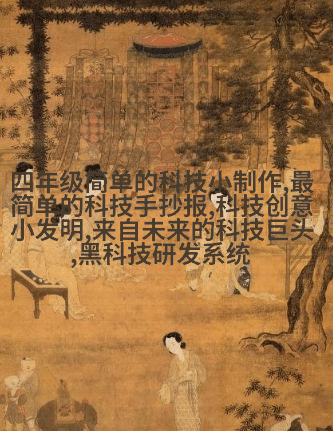 四年级简单的科技小制作,最
简单的科技手抄报,科技创意
小发明,来自未来的科技巨头
,黑科技研发系统